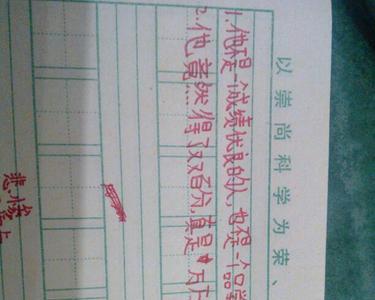 以崇尚科学为荣、
1.他不是一个成绩优良的人,也不是一个品学
2.他竟然……得了双百分,真是